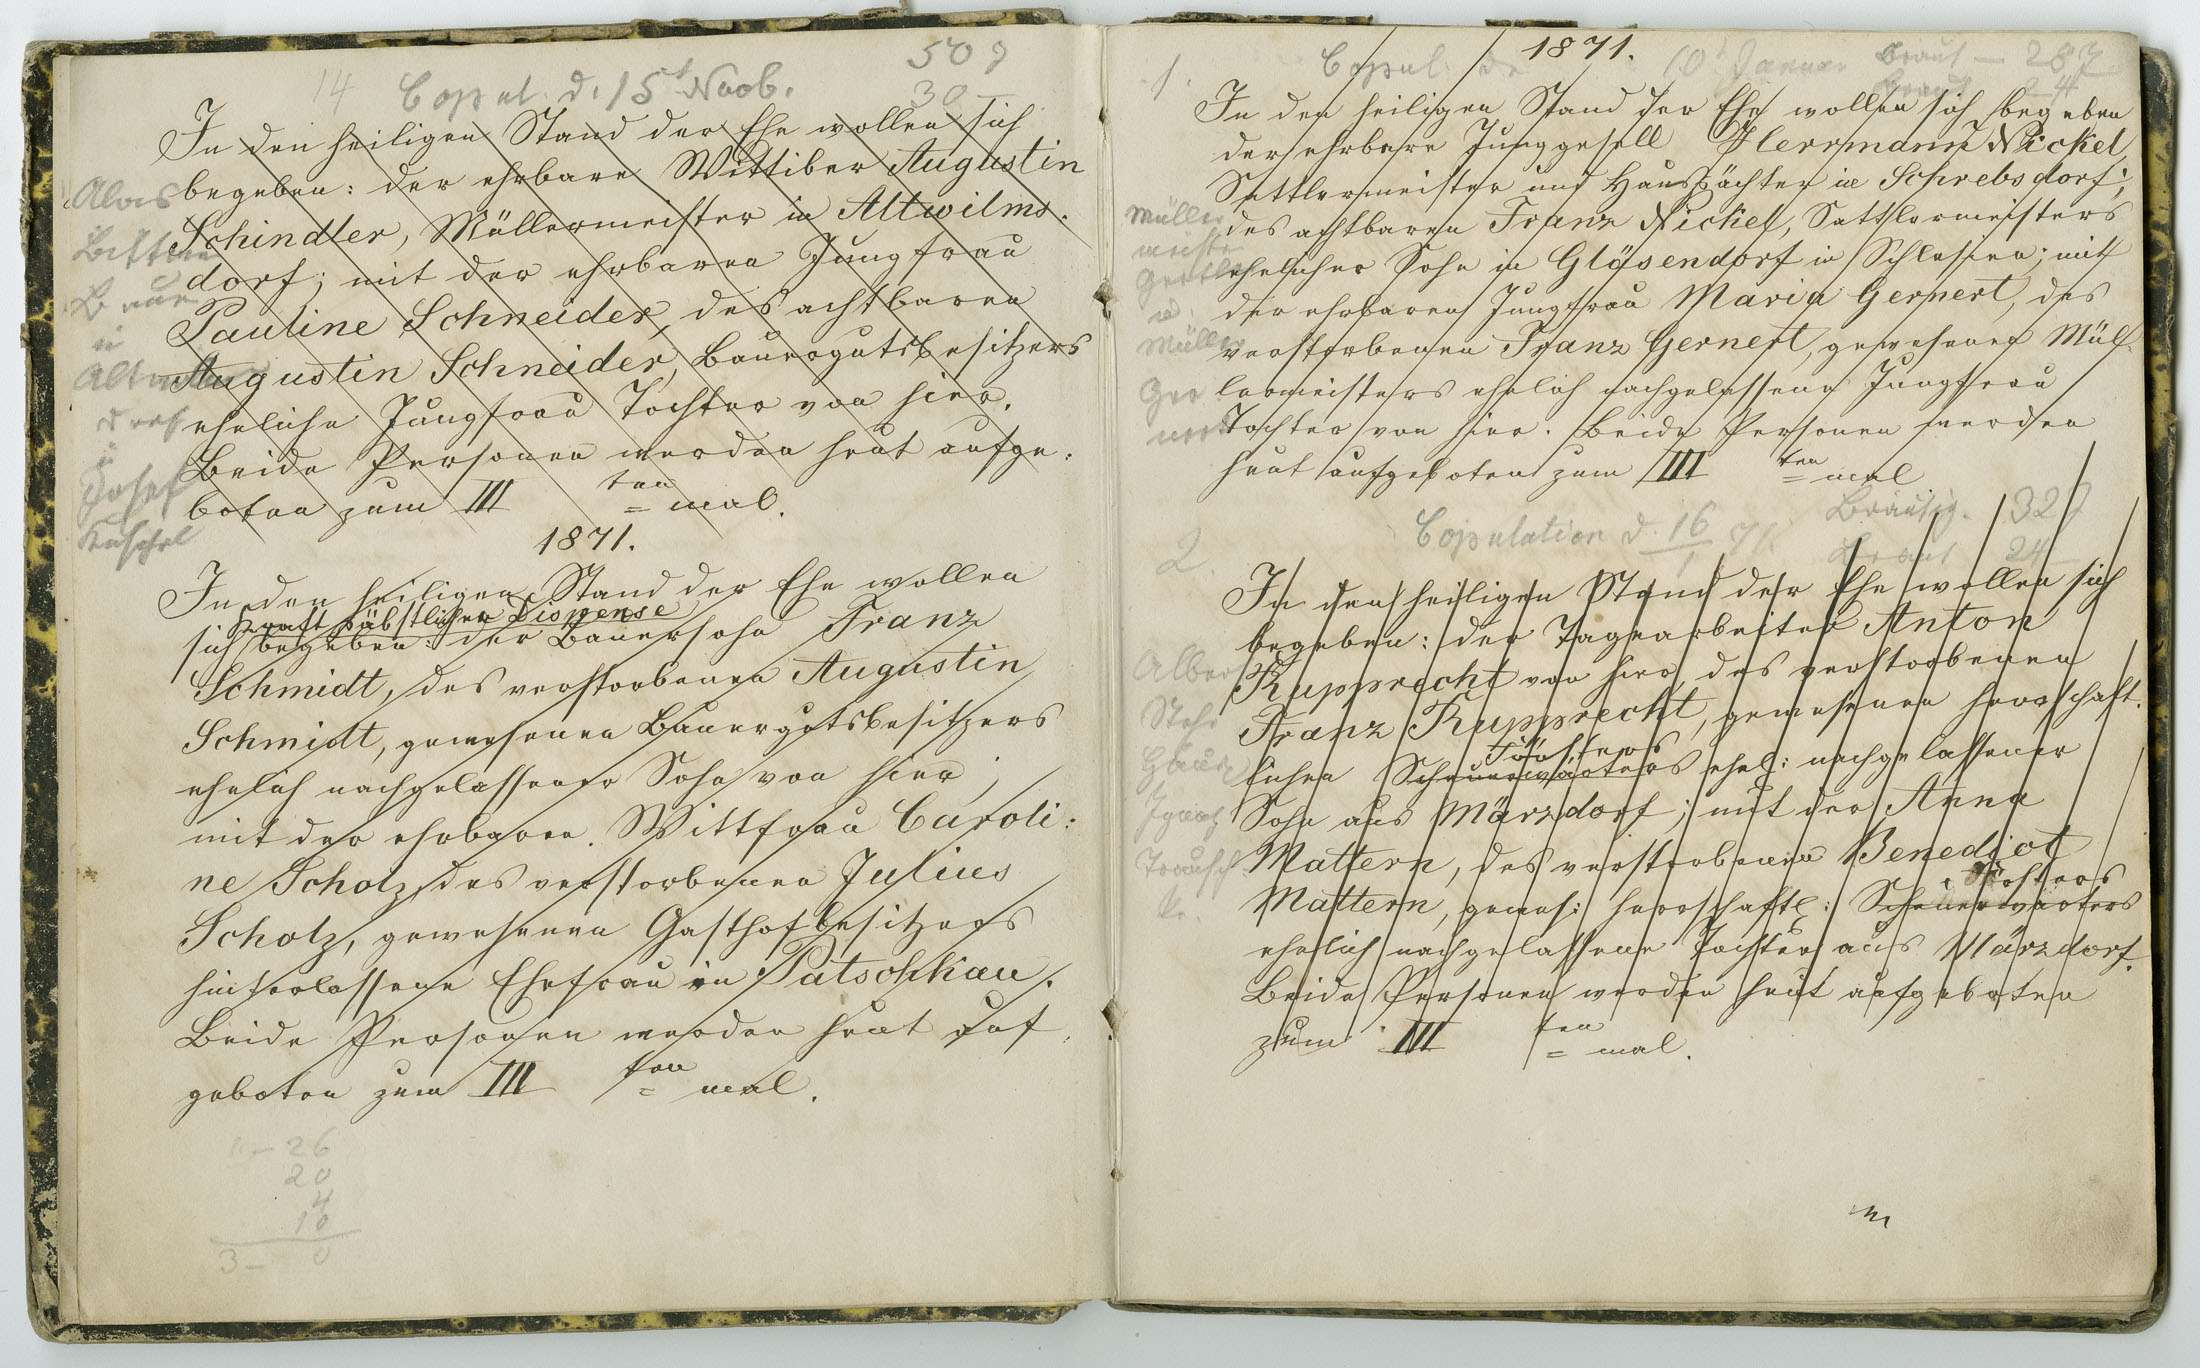 14 Copul. d. 15t Novb.
50 9
30 –
In den heiligen Stand der Ehe wollen sich
begeben: der ehrbare Wittiber Augustin
Schindler, Müllermeister in Altwilms-
dorf; mit der ehrbaren Jungfrau
Pauline Schneider, des achtbaren
Augustin Schneider, Bauergutsbesitzers
eheliche Jungfrau Tochter von hier.
Beide Personen werden heut aufge-
boten zum III ten = mal.
Alois
Bittner
Bauer
in
Altwilms
dorf
u
Josef
Ruschel
1871.
In den heiligen Stand der Ehe wollen
Kraft päbstlicher Dispense
sich begeben: der Bauersohn Franz
Schmidt, des verstorbenen Augustin
Schmidt, gewesenen Bauergutsbesitzers
ehelich nachgelassener Sohn von hier;
mit der ehrbaren Wittfrau Caroli:
ne Scholz, des verstorbenen Julius
Scholz, gewesenen Gasthofbesitzers
hinterlassene Ehefrau in Patschkau.
Beide Personen werden heut auf-
geboten zum III ten = mal.
– 26
20
4
10
3 – 0
1871.
1. Copul. d. 10t Januar Braut – 28 9
24
In den heiligen Stand der Ehe wollen sich begeben
der ehrbare Junggesell Herrmann Nickel,
Sattlermeister und Hauspächter in Schrebsdorf;
des achtbaren Franz Nickel, Sattlermeisters
ehelicher Sohn in Gläsendorf in Schlesien; mit
der ehrbaren Jungfrau Maria Gernert, des
verstorbenen Franz Gernert, gewesenen Mül-
lermeisters ehelich nachgelassene Jungfrau
Tochter von hier. Beide Personen werden
heut aufgeboten zum III ten = mal
Müller
meister
u.
Müller
Ger
nert
2. Copulation d. 16/1 71. Bräutig. 32 9
Braut 24 –
In den heiligen Stand der Ehe wollen sich
begeben: der Tagearbeiter Anton
Rupprecht von hier, des verstorbenen
Franz Rupprecht, gewesenen herrschaft-
Försters
lichen Scheuerwärters ehel: nachgelassener
Sohn aus Märzdorf; mit der Anna
Mattern, des verstorbenen Benedict
Försters
Mattern, gewes: herrschaftl: Scheuerwärters
ehelich nachgelassene Tochter aus Märzdorf.
Beide Personen werden heut aufgeboten
zum III ten = mal.
Albert
Ignatz